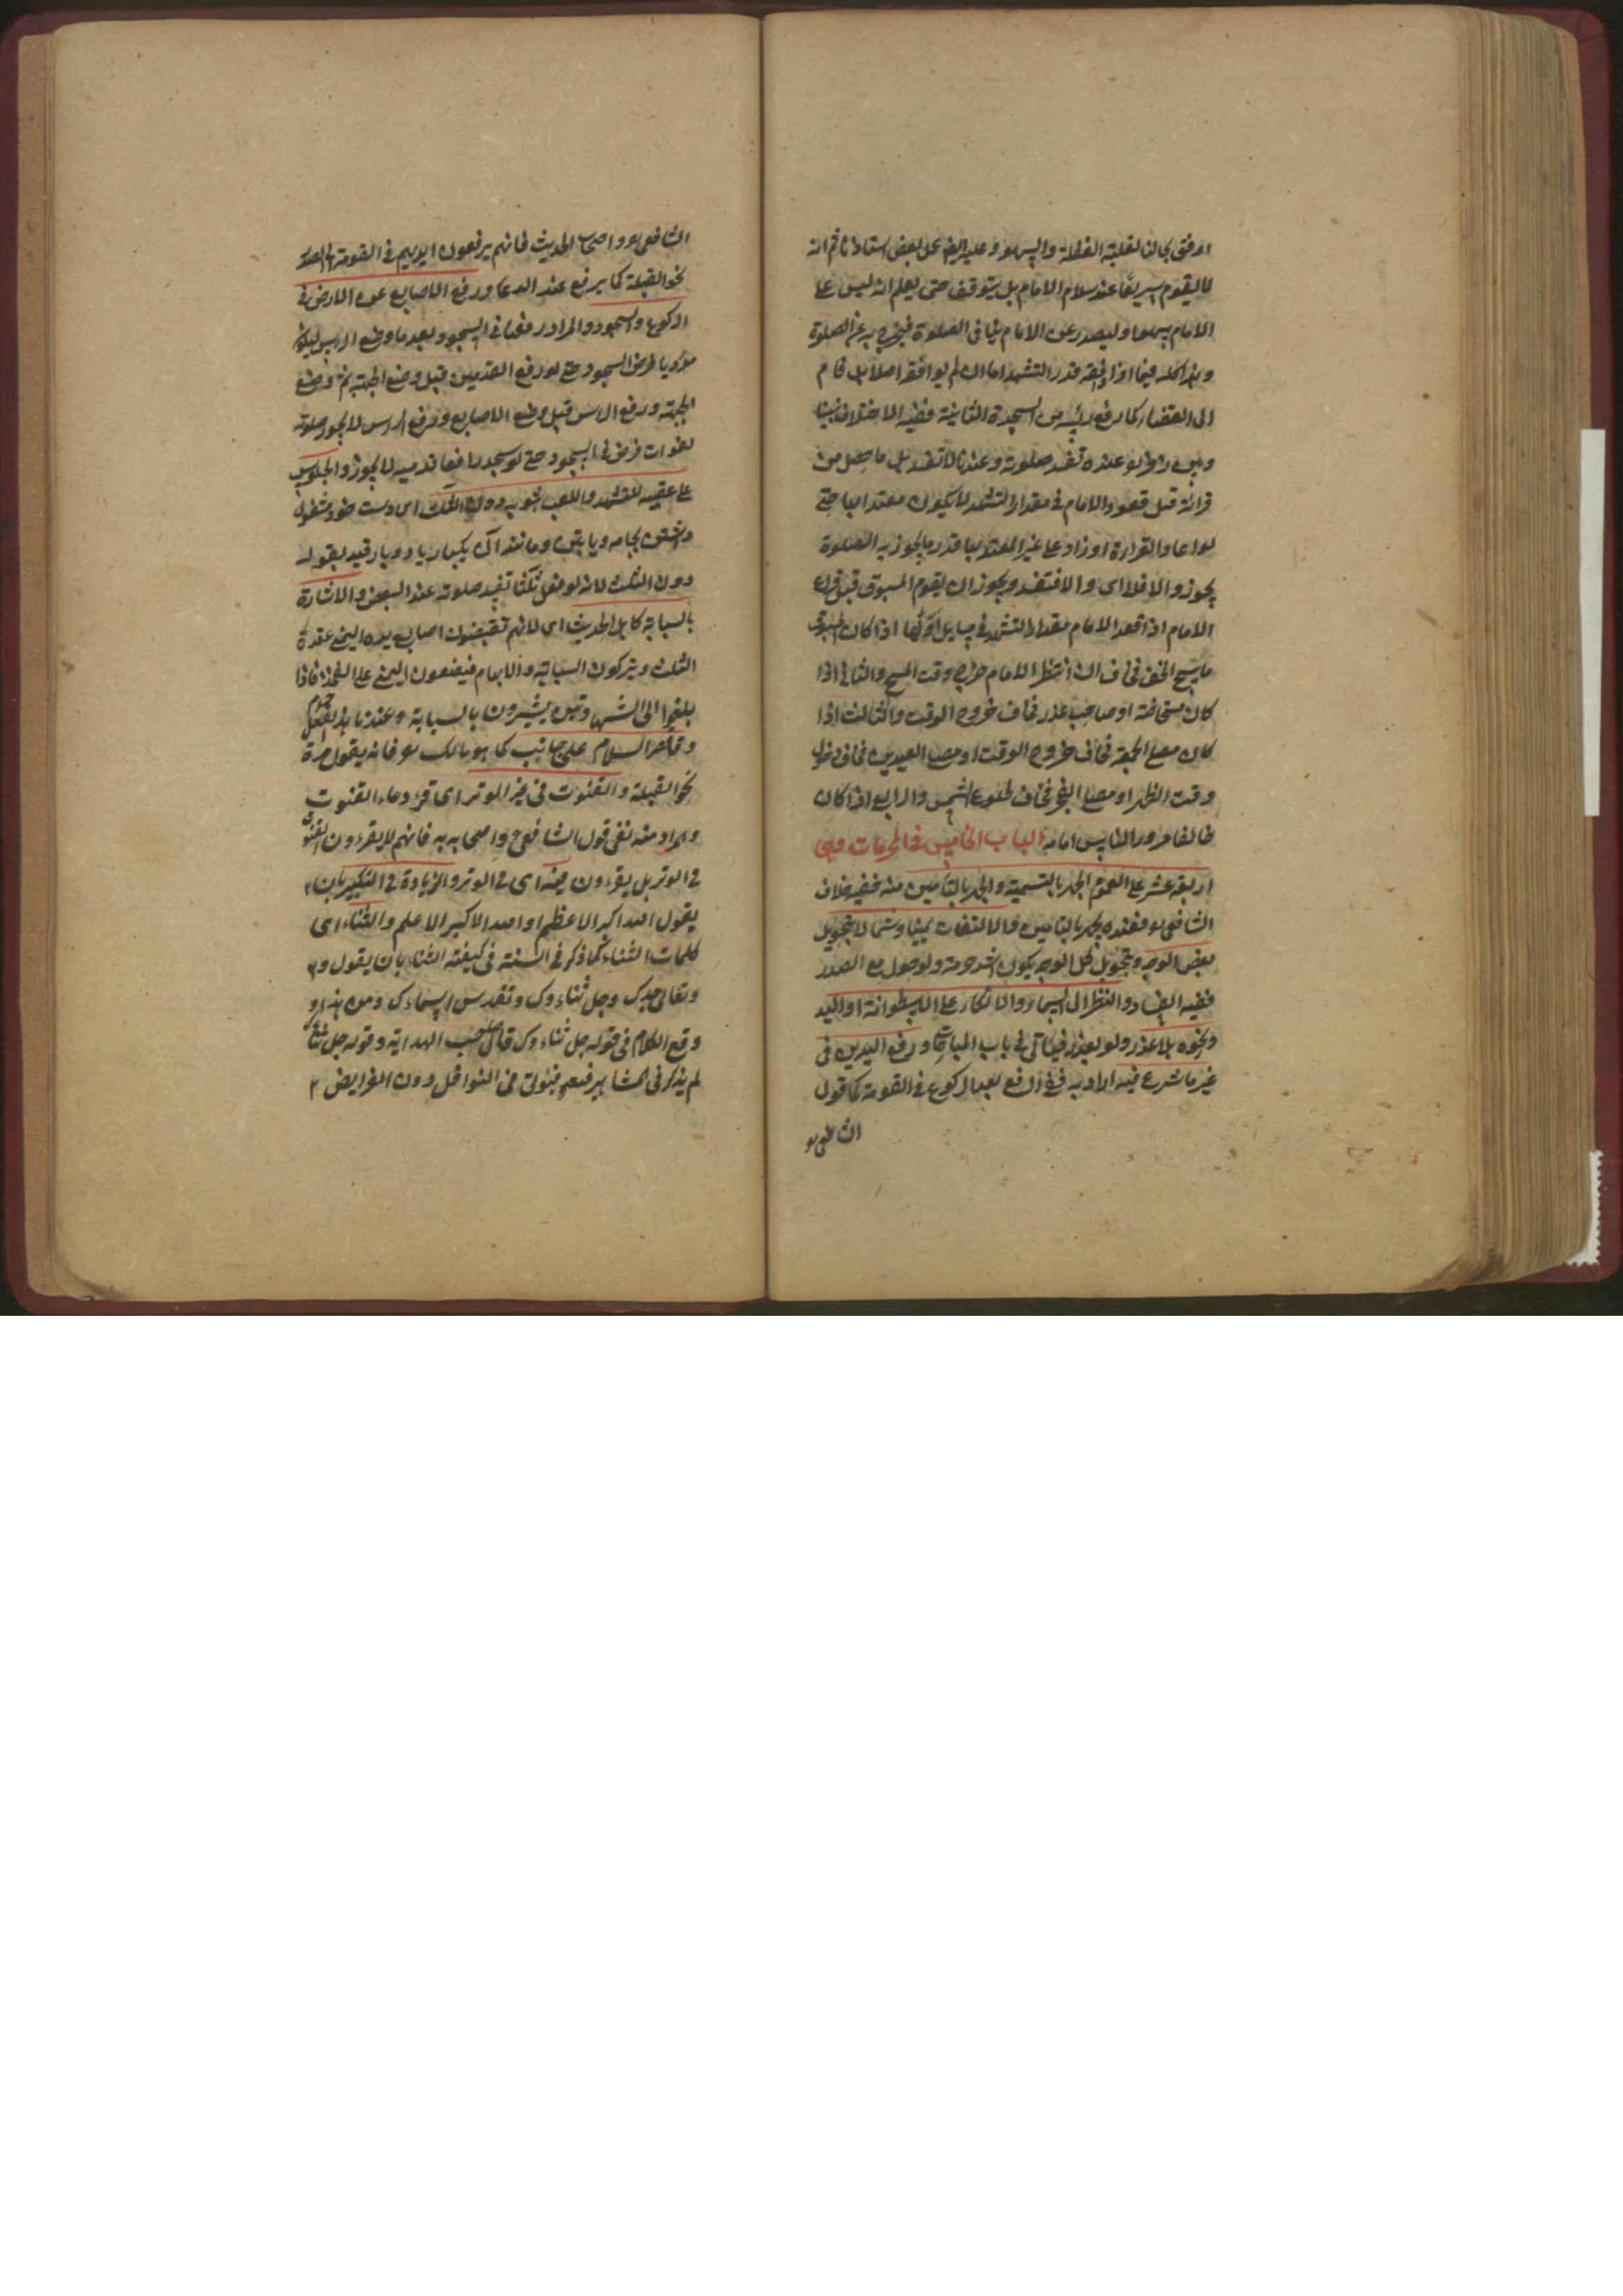 اوفق بحالنا لغلبة الغفلة والسهو وعليه ايضا عمل بعض استاذنا ثم انه
لا يقوم سريعا عند سلام الامام بل يتوقف حتى يعلم انه ليس على
الامام سهوا وليصدر عن الامام ينافى الصلوة فيخرج به عن الصلوة
وهذا كله فيما اذا وافقه قدر التشهد اما ان لم يوافقه اصلا بل قام
الى القضاء كما رفع راسه من السجدة الثانية ففيه الاختلاف بيننا
وبين زفر عنده تفسد صلوته وعندنا لا تفسد بل ما حصل من
قرائة قبل قعود الامام فى مقدار التشهد لا يكون معتدا بها حتى
لو اعاد القراءة او زاد على غير المعتد بها قدر ما يجوز به الصلوة
يجوز والا فلا اى والا فتفسد ويجوز ان يقوم المسبوق قبل فراغ
الامام اذا قعد الامام مقدار التشهد فى مسايل اولها اذا كان المسبوق
ماسح الخف فخاف ان انتظر الامام خرج وقت المسح والثانى اذا
كان مستحاضة او صاحب عذر فخاف خروج الوقت والثالث اذا
كان مصلى الجمعة فخاف خروج الوقت او مصلى العيدين فخاف دخول
وقت الظهر او مصلى الفجر فخاف طلوع الشمس والرابع اذا كان
خائفا مرور الناس امامه الباب الخامس فى المحرمات وهى
اربعة عشر على العموم الجهر بالتسمية والجهر بالتأمين منه ففيه خلاف
الشافعى فعنده يجهر بالتامين والالتفات يمينا وشمالا بتحويل
بعض الوجه وتحويل كل الوجه يكون اشد حرمة ولو حول مع الصدر
ففيه الفساد والنظر الى السماء والاتكاء على الاسطوانة او اليد
ونحوه بلا عذر ولو بعذر فيأتى فى باب المباحات ورفع اليدين فى
غير ما شرع فيه الاراد به فى الرفع بعد الركوع فى القومة كما قول
الشافعى
الشافعى واصحاب الحديث فانهم يرفعون ايديهم فى القومة الى الصدر
نحو القبلة كما يرفع عند الدعا ورفع الاصابع عن الارض فى
الركوع والسجود والمراد رفعها فى السجود بعد ما وضع الراس ليكون
مؤديا فرض السجود حتى لو رفع القدمين قبل وضع الجبهة ثم وضع
الجبهة ورفع الراس قبل وضع الاصابع ورفع الراس لا يجوز صلوته
لفوات فرض فى السجود حتى لو سجد رافعا قدميه لا يجوز والجلوس
على عقبيه للتشهد واللعب بثوبه دون الثلث اى دست خود مشغول
داشتن بجامه ويا بتن ومانند آن يكبار يا دو بار قيد بقوله
دون الثلث لانه لو فعل ثلثا تفسد صلوته عند البعض والاشارة
بالسبابة كاهل الحديث اى لانهم تقبضون اصابع يده اليمنى عقدة
الثلث ويتركون السبابة والابهام فيضعون اليمنى على الفخذ فاذا
بلغوا الى الشهادتين يشيرون بالسبابة وعندنا هذا الفعل حرام
وقصر السلام على جانب كما هو مالك فانه يقول مرة
نحو القبلة والقنوت فى غير الوتر اى قرء دعاء القنوت
والمراد منه نفى قول الشافعى واصحابه فانهم لا يقرءون القنوت
فى الوتر بل يقرءون فى غيره اى فى الوتر والزيادة فى التكبير بان
يقول الله اكبر الاعظم او الله الاكبر الاعلم والثناء اى
كلمات الثناء كما ذكر فى السنة فى كيفية الثناء بان يقول و
وتعالى جدك وجل ثناءوك وتقدس اسماءك ومن هذا
وقع الكلام فى قوله جل ثناءوك قال صاحب الهداية وقوله جل ثناءك
لم يذكر فى المشاهير فى النوافل دون الفرايض